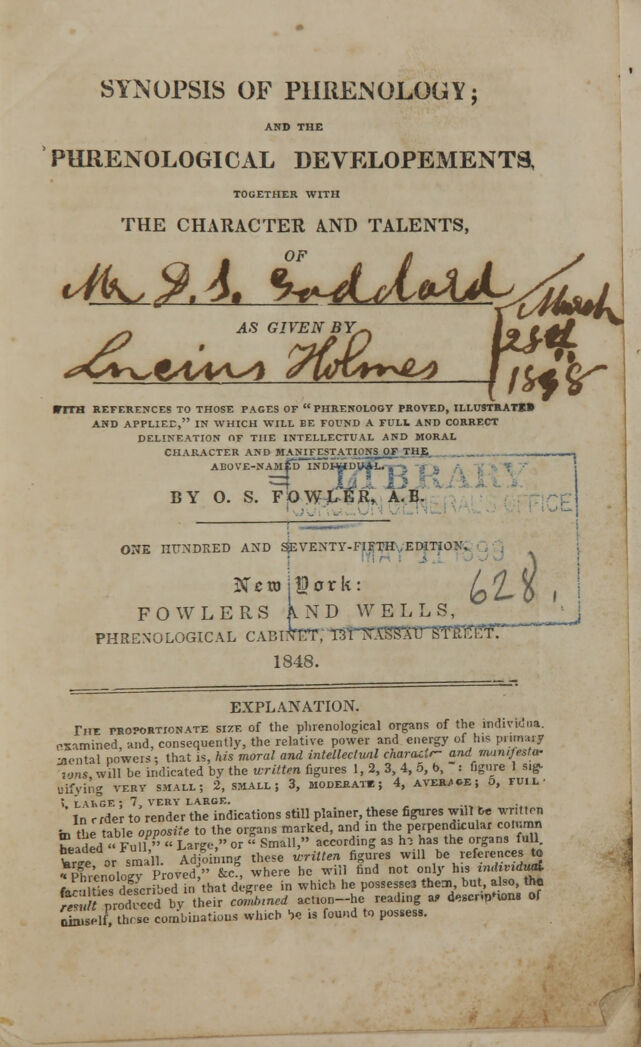 SYNOPSIS OF PHRENOLOGY;
AND THE
PHRENOLOGICAL DEVELOPEMENTS,
TOGETHER WITH
THE CHARACTER AND TALENTS,
OF
Mr D. S. Goddard
March
AS GIVEN BY
Lucius Holmes
WITH REFERENCES TO THOSE PAGES OF "PHRENOLOGY PROVED, ILLUSTRATED
AND APPLIED," IN WHICH WILL BE FOUND A FULL AND CORRECT
DELINEATION OF THE INTELLECTUAL AND MORAL
CHARACTER AND MANIFESTATIONS OF THE
ABOVE-NAMED INDIVIDUAL.
LIBRARY
BY O. S. FOWLER, A.B.
SURGEON GENERAL'S OFFICE
ONE HUNDRED AND SEVENTY-FIFTH EDITION.
New York:
628.
FOWLERS AND WELLS,
PHRENOLOGICAL CABINET, 131 NASSAU STREET.
1848.
EXPLANATION.
THE PROPORTIONATE SIZE of the phrenological organs of the individua.
examined, and, consequently, the relative power and energy of his primary
mental powers; that is, his moral and intellectual character and manifesta-
ions, will be indicated by the written figures 1, 2, 3, 4, 5, 6, : figure 1 sig-
nifying VERY SMALL; 2, SMALL; 3, MODERATE; 4, AVERAGE; 5, FULL
LARGE; 7, VERY LARGE.
In order to render the indications still plainer, these figures will be written
in the table opposite to the organs marked, and in the perpendicular column
headed "Full," "Large," or "Small," according as he has the organs full,
large, or small. Adjoining these written figures will be references to
"Phrenology Proved," &c., where he will find not only his individual
faculties described in that degree in which he possesses them, but, also, the
result produced by their combined action—he reading as descriptions of
himself, those combinations which he is found to possess.